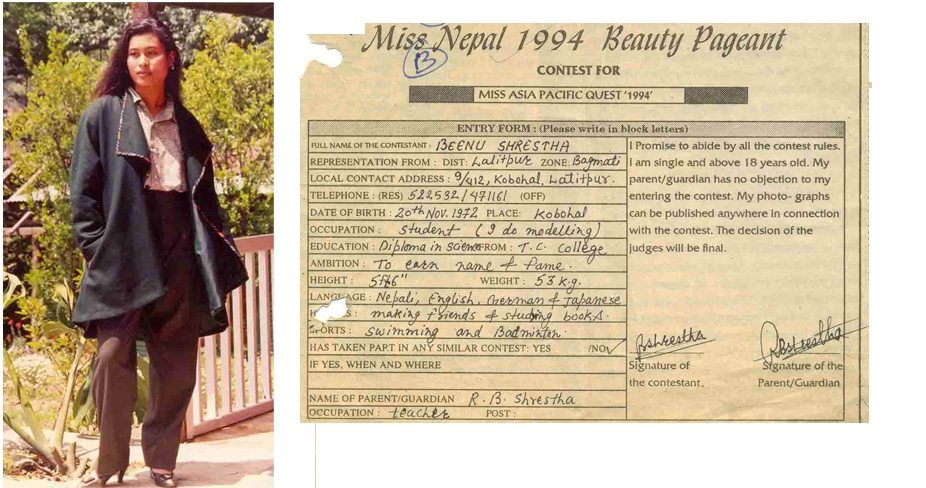 Miss Nepal 1994 Beauty Pageant
B
CONTEST FOR
MISS ASIA PACIFIC QUEST '1994'
ENTRY FORM : (Please write in block letters)
FULL NAME OF THE CONTESTANT : BEENU SHRESTHA
REPRESENTATION FROM : DIST: Lalitpur ZONE: Bagmati
LOCAL CONTACT ADDRESS : 9/412, Kobohal, Lalitpur.
TELEPHONE : (RES) 522532/471161 (OFF)
DATE OF BIRTH : 20th Nov. 1972 PLACE: Kobohal
OCCUPATION : Student (I do modelling)
EDUCATION : Diploma in science FROM : T.C. college
AMBITION : To earn name & fame.
HEIGHT : 5'6" WEIGHT : 53 k.g.
LANGUAGE : Nepali, English, German & Japanese
making friends & studing books.
SPORTS : swimming and Badminton.
HAS TAKEN PART IN ANY SIMILAR CONTEST: YES /NO ✓
IF YES, WHEN AND WHERE
NAME OF PARENT/GUARDIAN R. B. Shrestha
OCCUPATION : teacher POST :
I Promise to abide by all the contest rules.
I am single and above 18 years old. My
parent/guardian has no objection to my
entering the contest. My photo- graphs
can be published anywhere in connection
with the contest. The decision of the
judges will be final.
Bshrestha
Rbshrestha
Signature of
the contestant,
Signature of the
Parent/Guardian